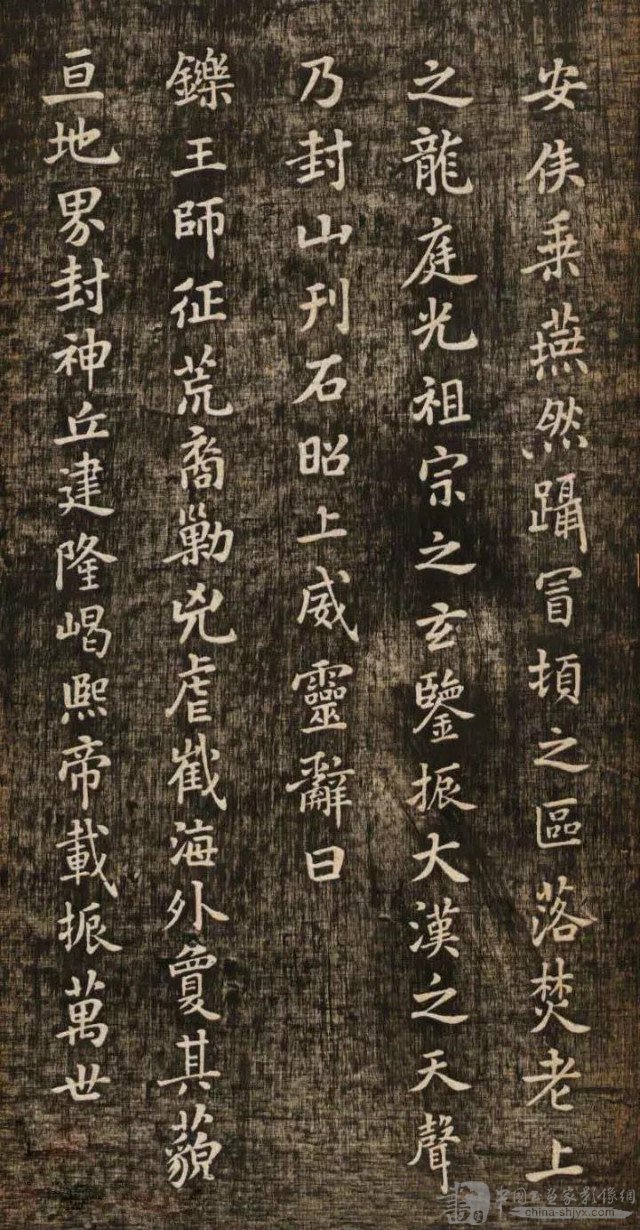 安侯乗燕然躡冒頓之區落焚老上
之龍庭光祖宗之玄鑒振大漢之天聲
乃封山刊石昭上威靈辭曰
鑠王師征荒裔勦兇虐截海外夐其藐
亘地界封神丘建隆嵑熙帝載振萬世
中国书画家影像網
china-shjyx.com